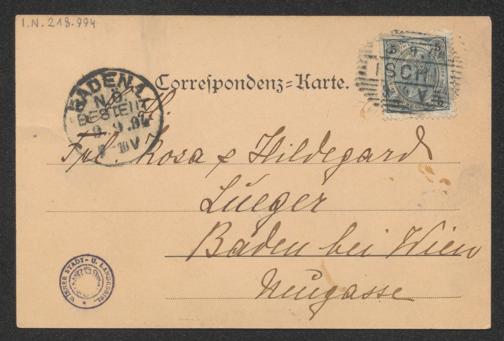 I.N. 218.994
BADEN 1
N.Ö.
BESTELLT
9. 9. 
IV
ISCHL
Correspondenz-Karte.
Frl. Rosa & Hildegard
Lueger
Baden bei Wien
Neugasse
WIENER STADT- U. LANDESBIBL.